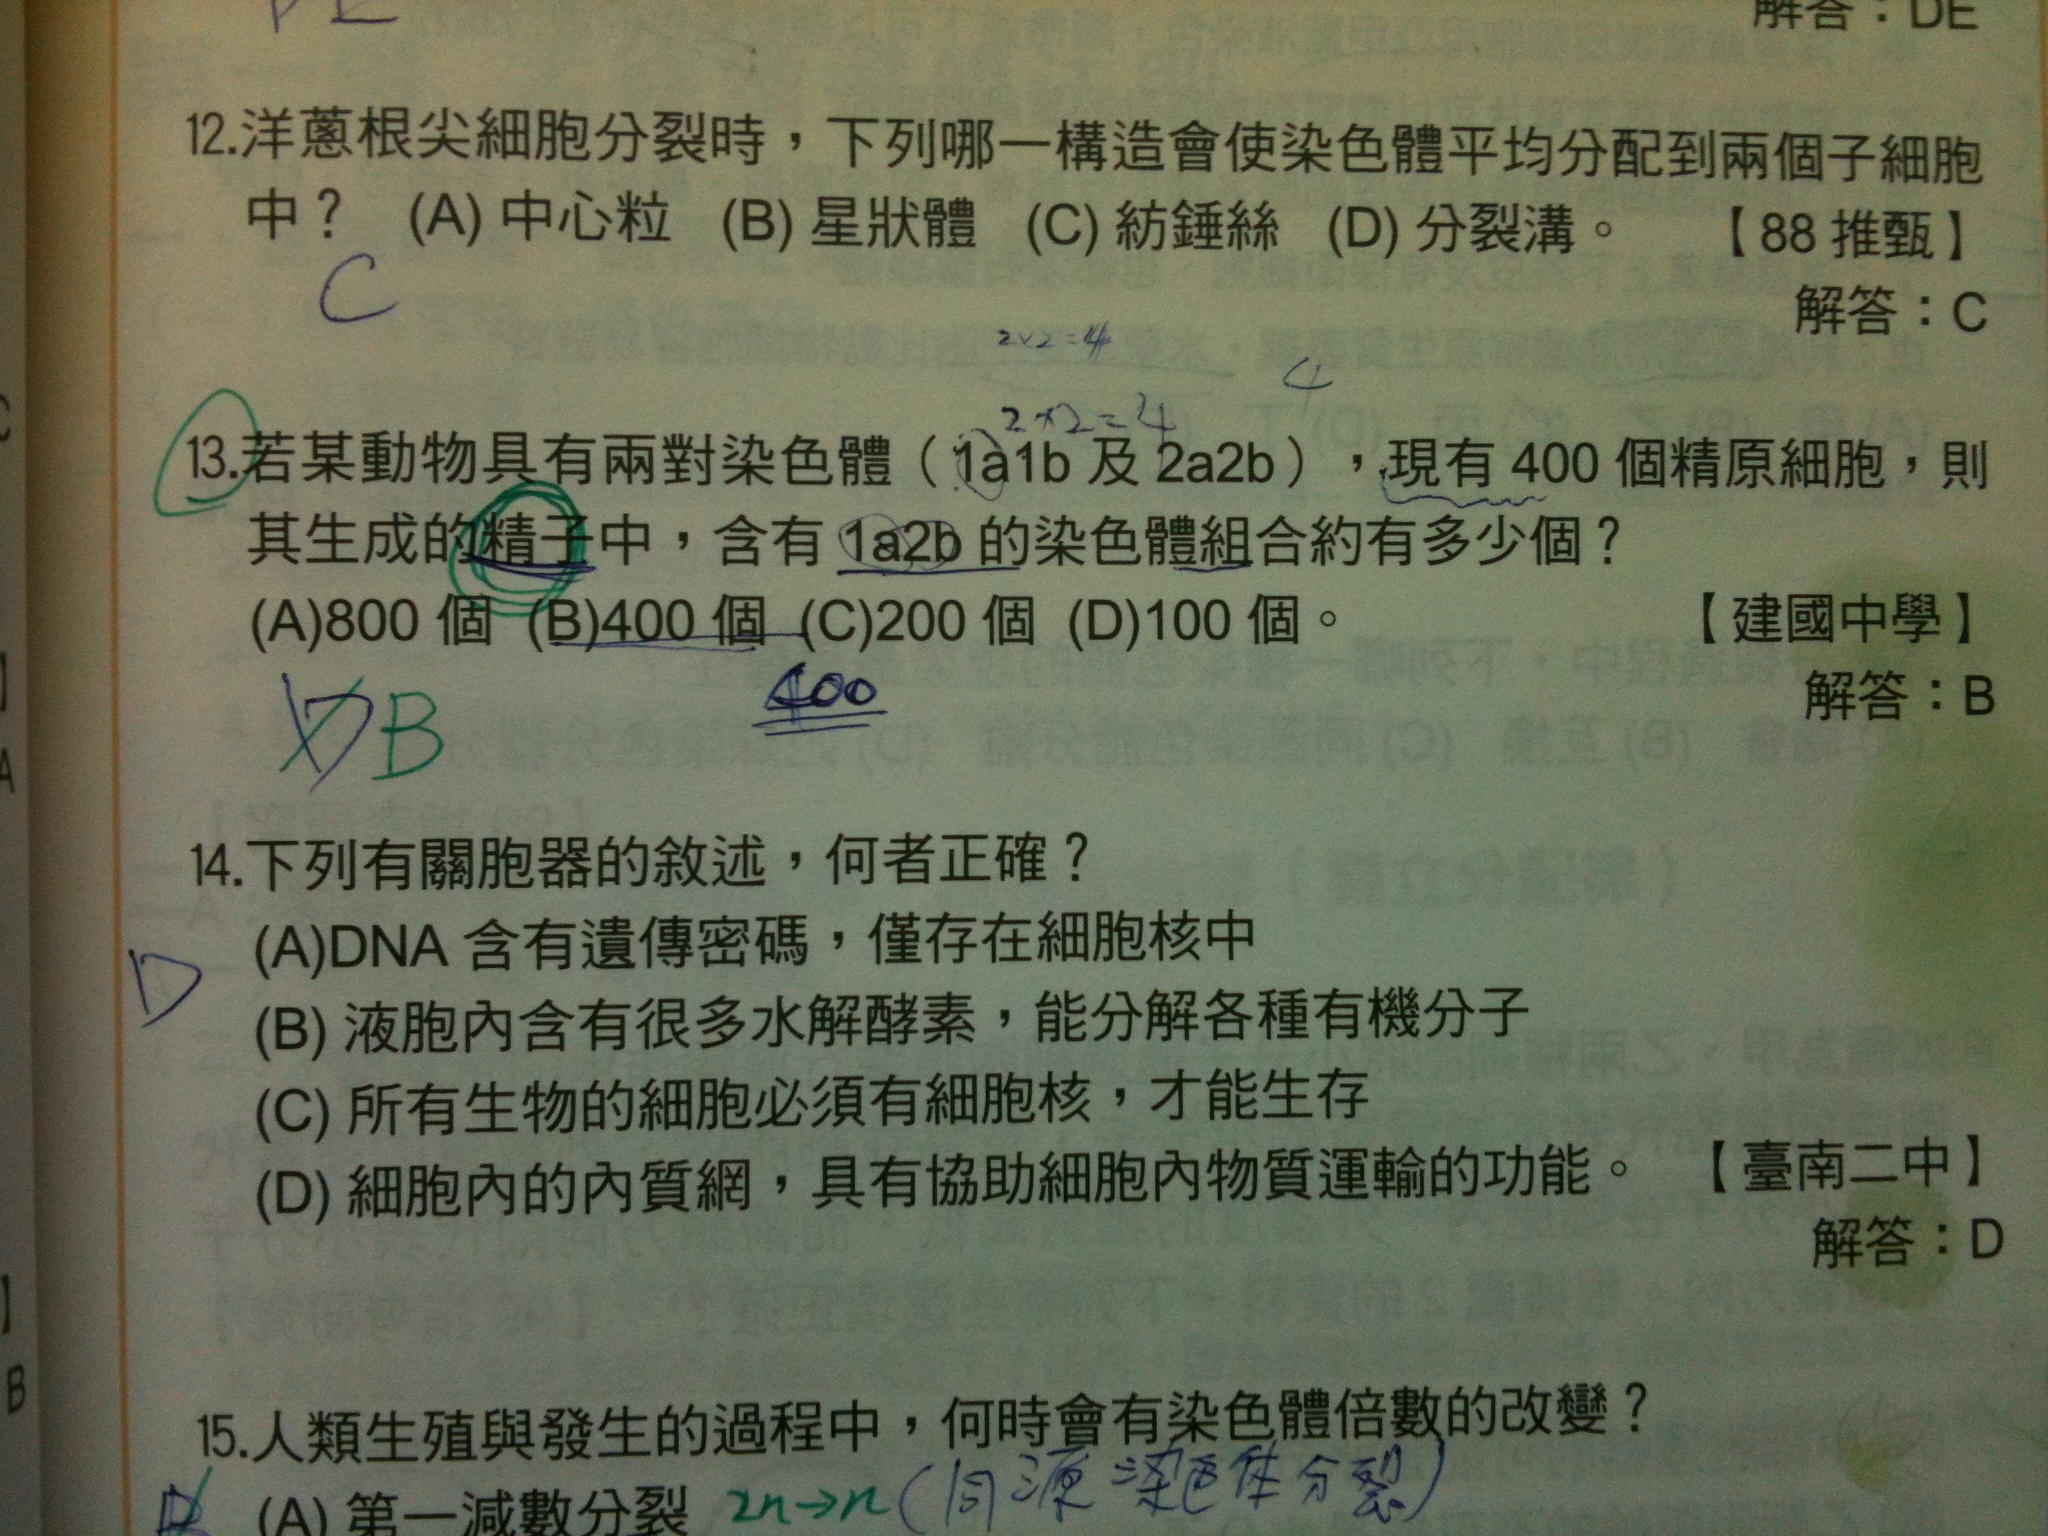 解答：DE
12.洋蔥根尖細胞分裂時，下列哪一構造會使染色體平均分配到兩個子細胞
中？ (A) 中心粒 (B) 星狀體 (C) 紡錘絲 (D) 分裂溝。 【88 推甄】
C
解答：C
2×2=4
4
2×2=4
13.若某動物具有兩對染色體（1a1b 及 2a2b），現有 400 個精原細胞，則
其生成的精子中，含有 1a2b 的染色體組合約有多少個？
(A)800 個 (B)400 個 (C)200 個 (D)100 個。 【建國中學】
400
D B
解答：B
14.下列有關胞器的敘述，何者正確？
(A)DNA 含有遺傳密碼，僅存在細胞核中
D
(B) 液胞內含有很多水解酵素，能分解各種有機分子
(C) 所有生物的細胞必須有細胞核，才能生存
(D) 細胞內的內質網，具有協助細胞內物質運輸的功能。 【臺南二中】
解答：D
15.人類生殖與發生的過程中，何時會有染色體倍數的改變？
(A) 第一減數分裂 2n→n (同源染色体分裂)